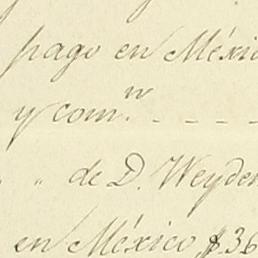 pago en Méxic
y com.n - - - -
" de D. Weyden
en México $ 36